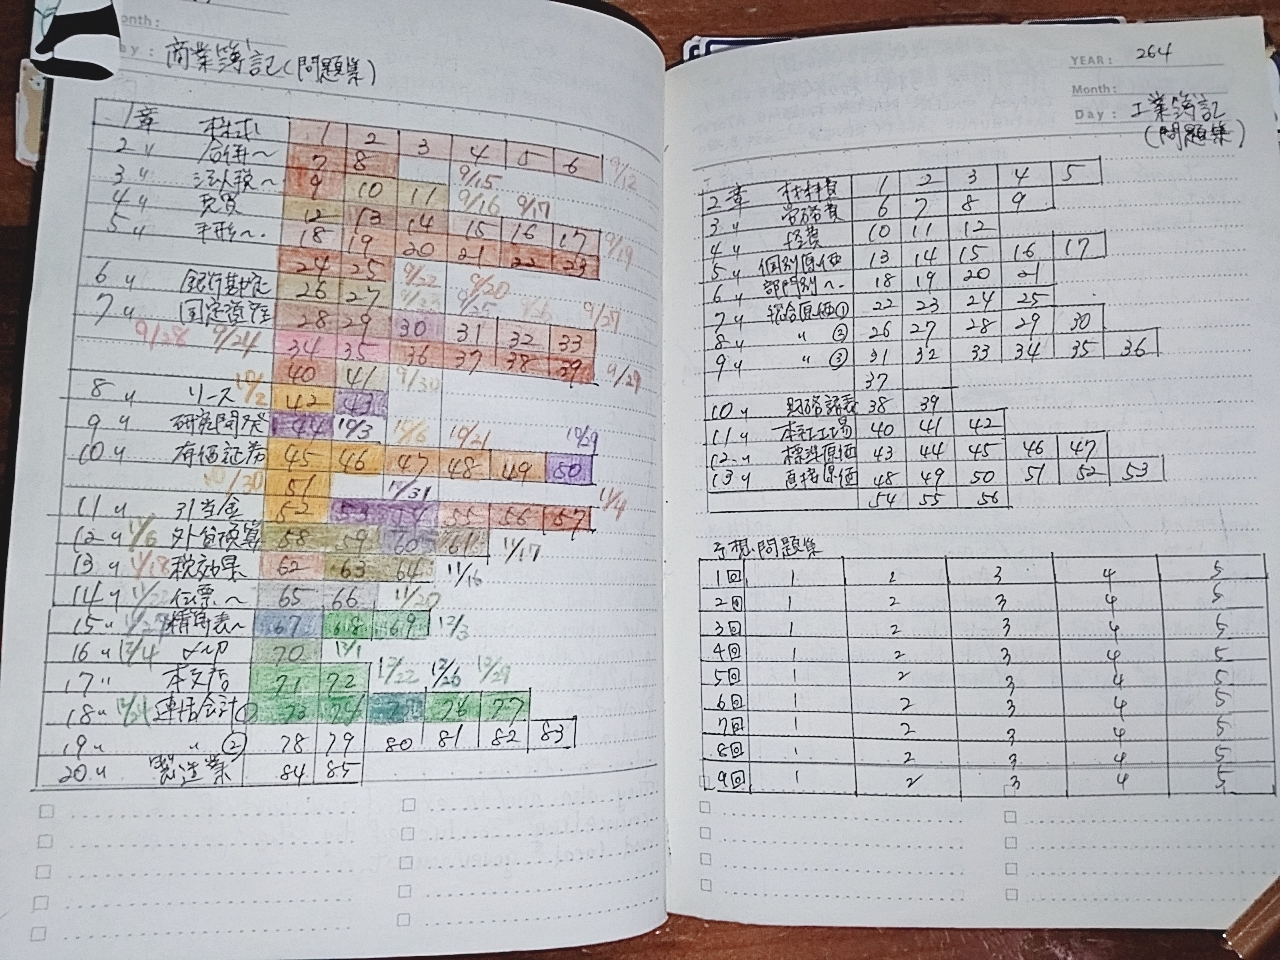 onth:
ay:
商業簿記(問題集)
1章 株式 1 2 3 4 5 6 9/12
2〃 合併〜 7 8 9/15
3〃 法人税〜 9 10 11 9/16 9/17
4〃 売買 12 13 14 15 16 17 9/19
5〃 手形〜 18 19 20 21 22 23
24 25 9/22 9/20
6〃 銀行勘定 26 27 9/25 9/27
7〃 固定資産 28 29 30 31 32 33
9/28 9/24 34 35 36 37 38 39 9/29
40 41 9/30
8〃 リース 10/2 42 43
9〃 研究開発 44 10/3 10/6 10/21 10/29
10〃 有価証券 45 46 47 48 49 50
10/30 51 10/31 11/4
11〃 引当金 52 53 54 55 56 57
12〃 11/6 外貨換算 58 59 60 61 11/17
13〃 11/18 税効果 62 63 64 11/16
14〃 伝票〜 65 66 11/20
15〃 11/27 精算表〜 67 68 69 12/3
16〃 12/4 70 12/1
17〃 本支店 71 72 12/22 12/26 12/29
18〃 12/21 連結会計① 73 74 75 76 77
19〃 〃 ② 78 79 80 81 82 83
20〃 製造業 84 85
YEAR: 264
Month:
Day: 工業簿記
(問題集)
2章 材料費 1 2 3 4 5
3〃 労務費 6 7 8 9
4〃 経費 10 11 12
5〃 個別原価 13 14 15 16 17
6〃 部門別〜 18 19 20 21
7〃 総合原価① 22 23 24 25
8〃 〃 ② 26 27 28 29 30
9〃 〃 ③ 31 32 33 34 35 36
37
10〃 財務諸表 38 39
11〃 本社工場 40 41 42
12〃 標準原価 43 44 45 46 47
13〃 直接原価 48 49 50 51 52 53
54 55 56
予想問題集
1回 1 2 3 4 5
2回 1 2 3 4 5
3回 1 2 3 4 5
4回 1 2 3 4 5
5回 1 2 3 4 5
6回 1 2 3 4 5
7回 1 2 3 4 5
8回 1 2 3 4 5
9回 1 2 3 4 5